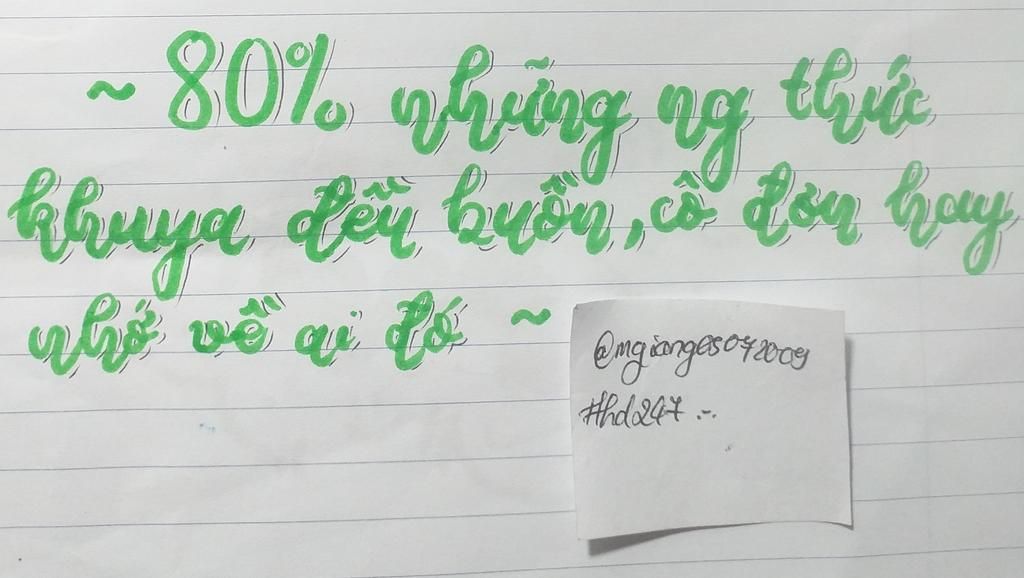 ~ 80% những ng thức
khuya đều buồn, cô đơn hay
nhớ về ai đó ~
@mgianges072009
#hd247 .-.